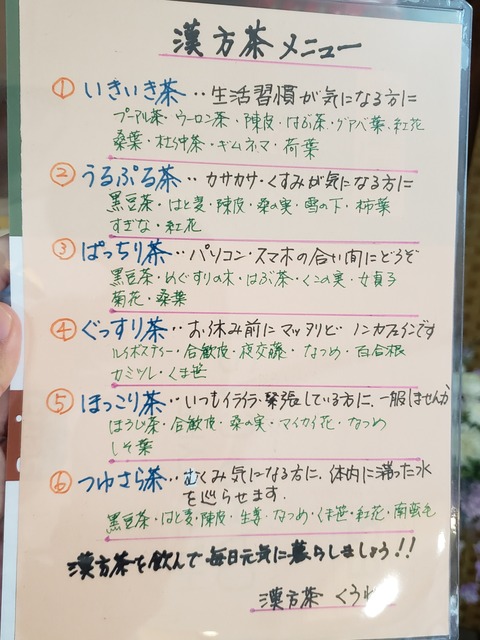 漢方茶メニュー
① いきいき茶‥生活習慣が気になる方に
プーアル茶・ウーロン茶・陳皮・はぶ茶・グアバ葉・紅花
桑葉・杜仲茶・ギムネマ・荷葉
② うるぷる茶‥カサカサ・くすみが気になる方に
黒豆茶・はと麦・陳皮・桑の実・雪の下・柿葉
すぎな・紅花
③ ぱっちり茶‥パソコン・スマホの合い間にどうぞ
黒豆茶・めぐすりの木・はぶ茶・くこの実・女貞子
菊花・桑葉
④ ぐっすり茶‥お休み前にマッタリと ノンカフェインです
ルイボスティー・合歓皮・夜交藤・なつめ・百合根
カミツレ・くま笹
⑤ ほっこり茶‥いつもイライラ・緊張している方に、一服しませんか
ほうじ茶・合歓皮・桑の実・マイカイ花・なつめ
しそ葉
⑥ つゆさら茶‥むくみ気になる方に、体内に滞った水
を巡らせます。
黒豆茶・はと麦・陳皮・生姜・なつめ・くま笹・紅花・南蛮毛
漢方茶を飲んで毎日元気に暮らしましょう!!
漢方茶